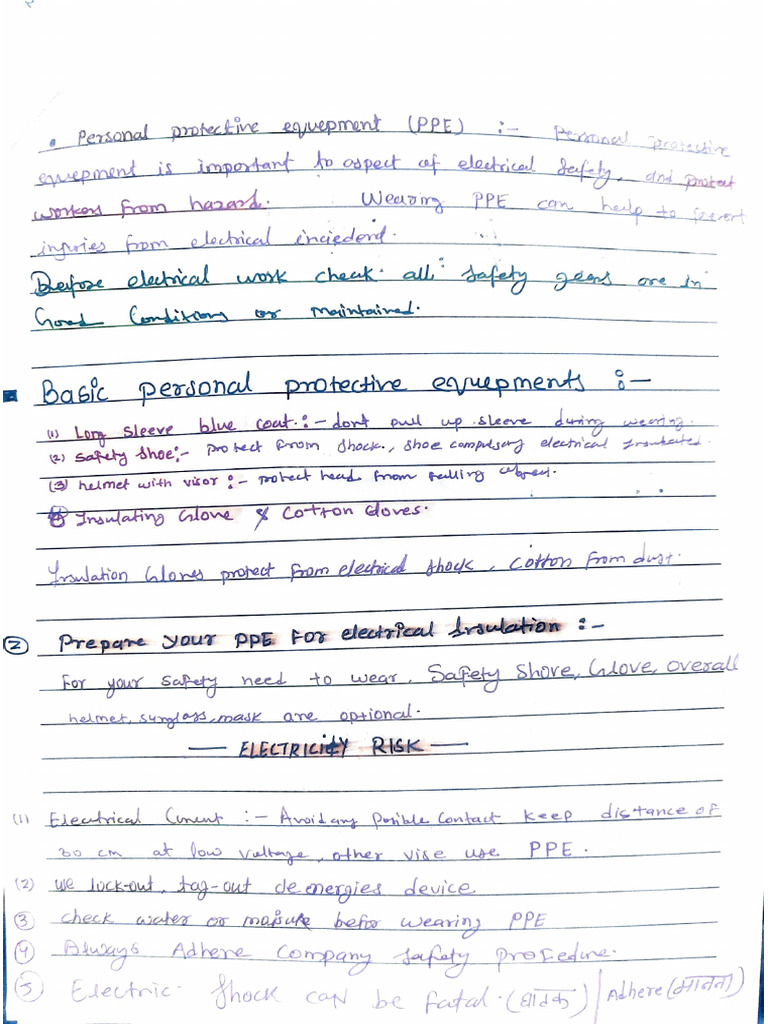 • Personal protective equepment (PPE) :- Personal protective
equepment is important to aspect of electrical safety, and protect
workers from hazard. Wearing PPE can help to prevent
injuries from electrical inciedend.
Before electrical work check all safety gears are in
Good Conditions or maintained.
Basic personal protective equepments :-
(1) Long sleeve blue coat :- dont pull up sleeve during wearing.
(2) Safety shoe:- protect from shock, shoe compulsory electrical Insulated.
(3) helmet with visor :- protect head from falling object.
(4) Insulating Glove & Cotton Gloves.
Insulation Gloves protect from electrical shock, Cotton from dust.
(2) Prepare your PPE For electrical Insulation :-
For your safety need to wear, Safety Shove, Glove, overall
helmet, sunglass, mask are optional.
— ELECTRICITY RISK —
(1) Electrical Current :- Avoid any Posible Contact keep distance of
30 cm at low voltage, other vise use PPE.
(2) We lock-out, tag-out de energies device.
(3) check water or before wearing PPE
(4) Always Adhere Company Safety Procedure.
(5) Electric Shock can be fatal. (घातक) | Adhere (मानना)